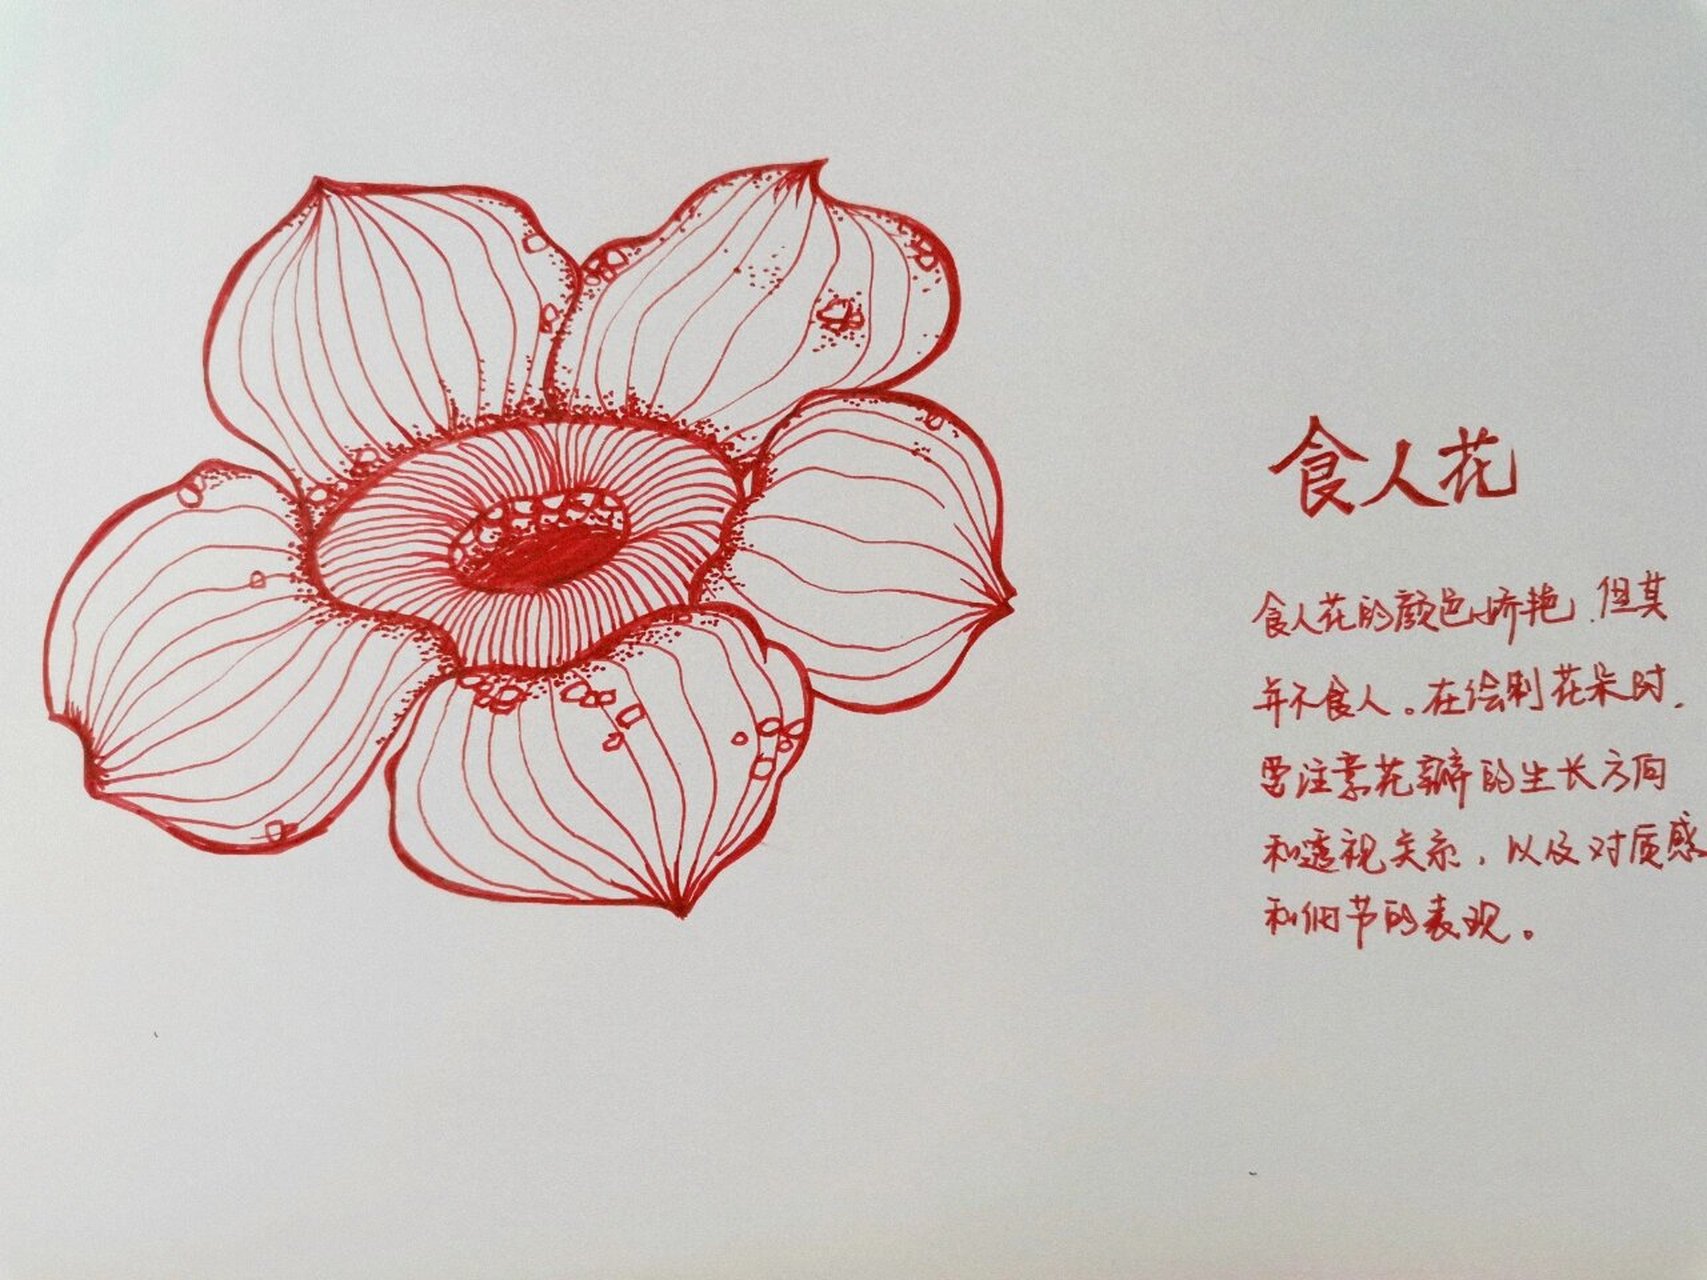 食人花
食人花的颜色娇艳，但其
并不食人。在绘制花朵时，
要注意花瓣的生长方向
和透视关系，以及对质感
和细节的表现。